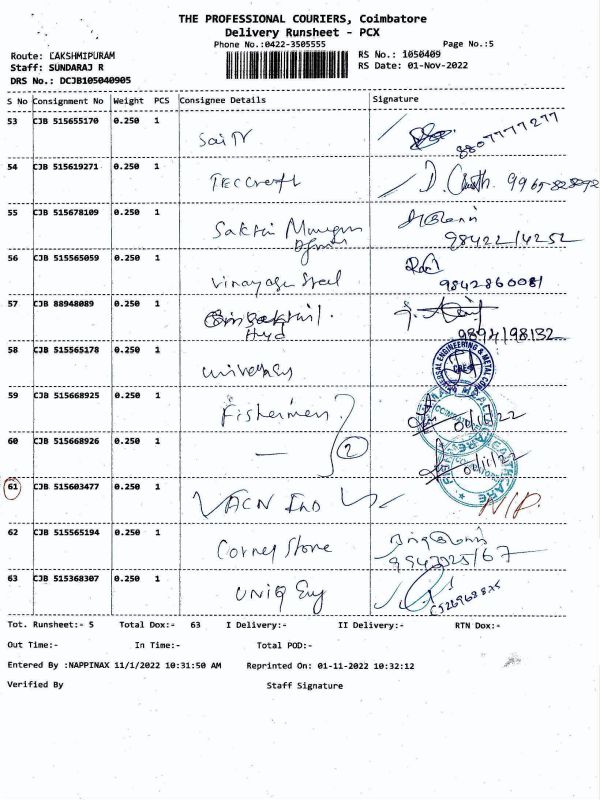 THE PROFESSIONAL COURIERS, Coimbatore
Delivery Runsheet - PCX
Phone No.:0422-3505555 Page No.:5
Route: LAKSHMIPURAM RS No.: 1050409
Staff: SUNDARAJ R RS Date: 01-Nov-2022
DRS No.: DCJB105040905
S No Consignment No Weight PCS Consignee Details Signature
53 CJB 515655170 0.250 1 8807777277
54 CJB 515619271 0.250 1 Teccraft
55 CJB 515678109 0.250 1 Sakthi
98422 14252
56 CJB 515565059 0.250 1 Vinayaga Steel
9842860081
57 CJB 88948089 0.250 1
9894198132
58 CJB 515565178 0.250 1
59 CJB 515668925 0.250 1 Fishermen
60 CJB 515668926 0.250 1 — 2
61 CJB 515603477 0.250 1 ACN Ind N/P.
62 CJB 515565194 0.250 1 Corner Stone
63 CJB 515368307 0.250 1 UNIQ Eng
Tot. Runsheet:- 5 Total Dox:- 63 I Delivery:- II Delivery:- RTN Dox:-
Out Time:- In Time:- Total POD:-
Entered By :NAPPINAX 11/1/2022 10:31:50 AM Reprinted On: 01-11-2022 10:32:12
Verified By Staff Signature